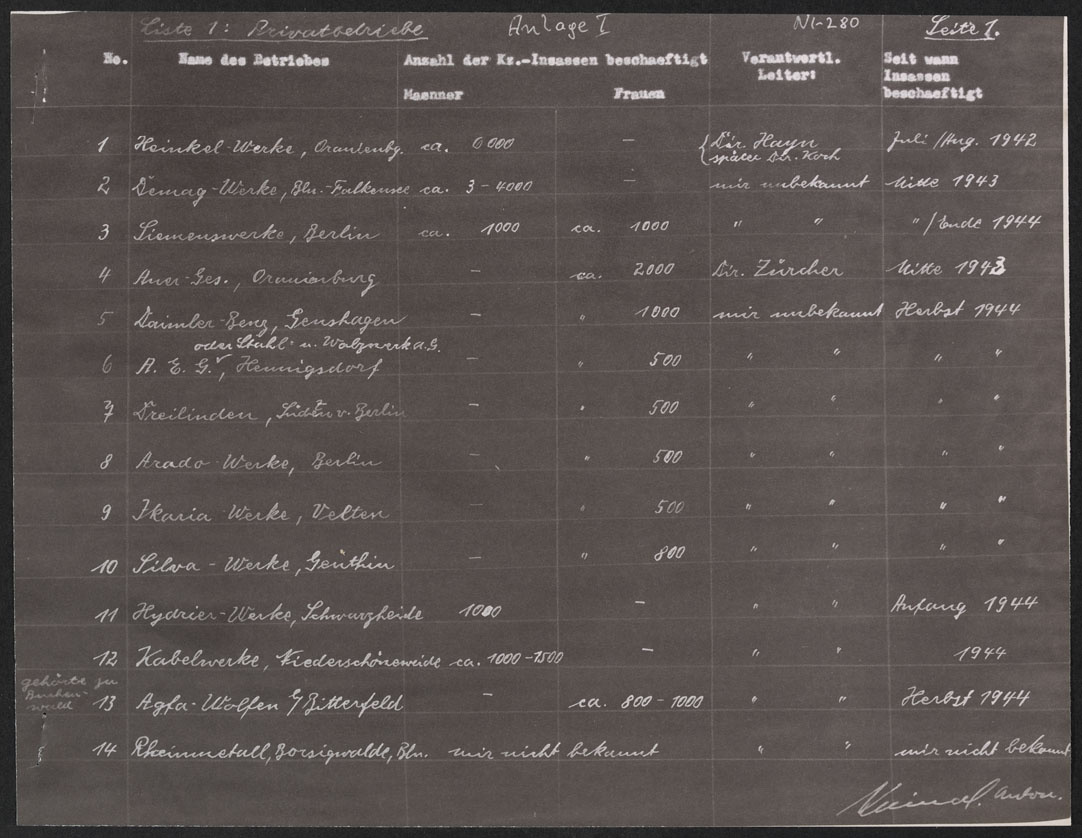 Liste 1: Privatbetriebe Anlage I NI-280 Seite 1.
No. Name des Betriebes Anzahl der Kz.-Insassen beschaeftigt Verantwortl. Leiter: Seit wann Insassen beschaeftigt
Maenner Frauen
1 Heinkel-Werke, Oranienbg. ca. 6000 — { Dir. Hayn Juli/Aug. 1942
später Dir. Koch
2 Demag-Werke, Bln.-Falkensee ca. 3-4000 — mir unbekannt Mitte 1943
3 Siemenswerke, Berlin ca. 1000 ca. 1000 " " "/Ende 1944
4 Auer-Ges., Oranienburg — ca. 2000 Dir. Zürcher Mitte 1943
5 Daimler-Benz, Genshagen — " 1000 mir unbekannt Herbst 1944
oder Stahl- u. Walzwerk A.G.
6 A. E. G., Hennigsdorf — " 500 " " " "
7 Dreilinden, Süden v. Berlin — " 500 " " " "
8 Arado-Werke, Berlin — " 500 " " " "
9 Ikaria-Werke, Velten — " 500 " " " "
10 Silva-Werke, Genthin — " 800 " " " "
11 Hydrier-Werke, Schwarzheide 1000 — " " Anfang 1944
12 Kabelwerke, Niederschöneweide ca. 1000-1500 — " " 1944
gehörte zu Buchenwald
13 Agfa-Wolfen b/Bitterfeld — ca. 800-1000 " " Herbst 1944
14 Rheinmetall, Borsigwalde, Bln. mir nicht bekannt " " mir nicht bekannt
Anton.